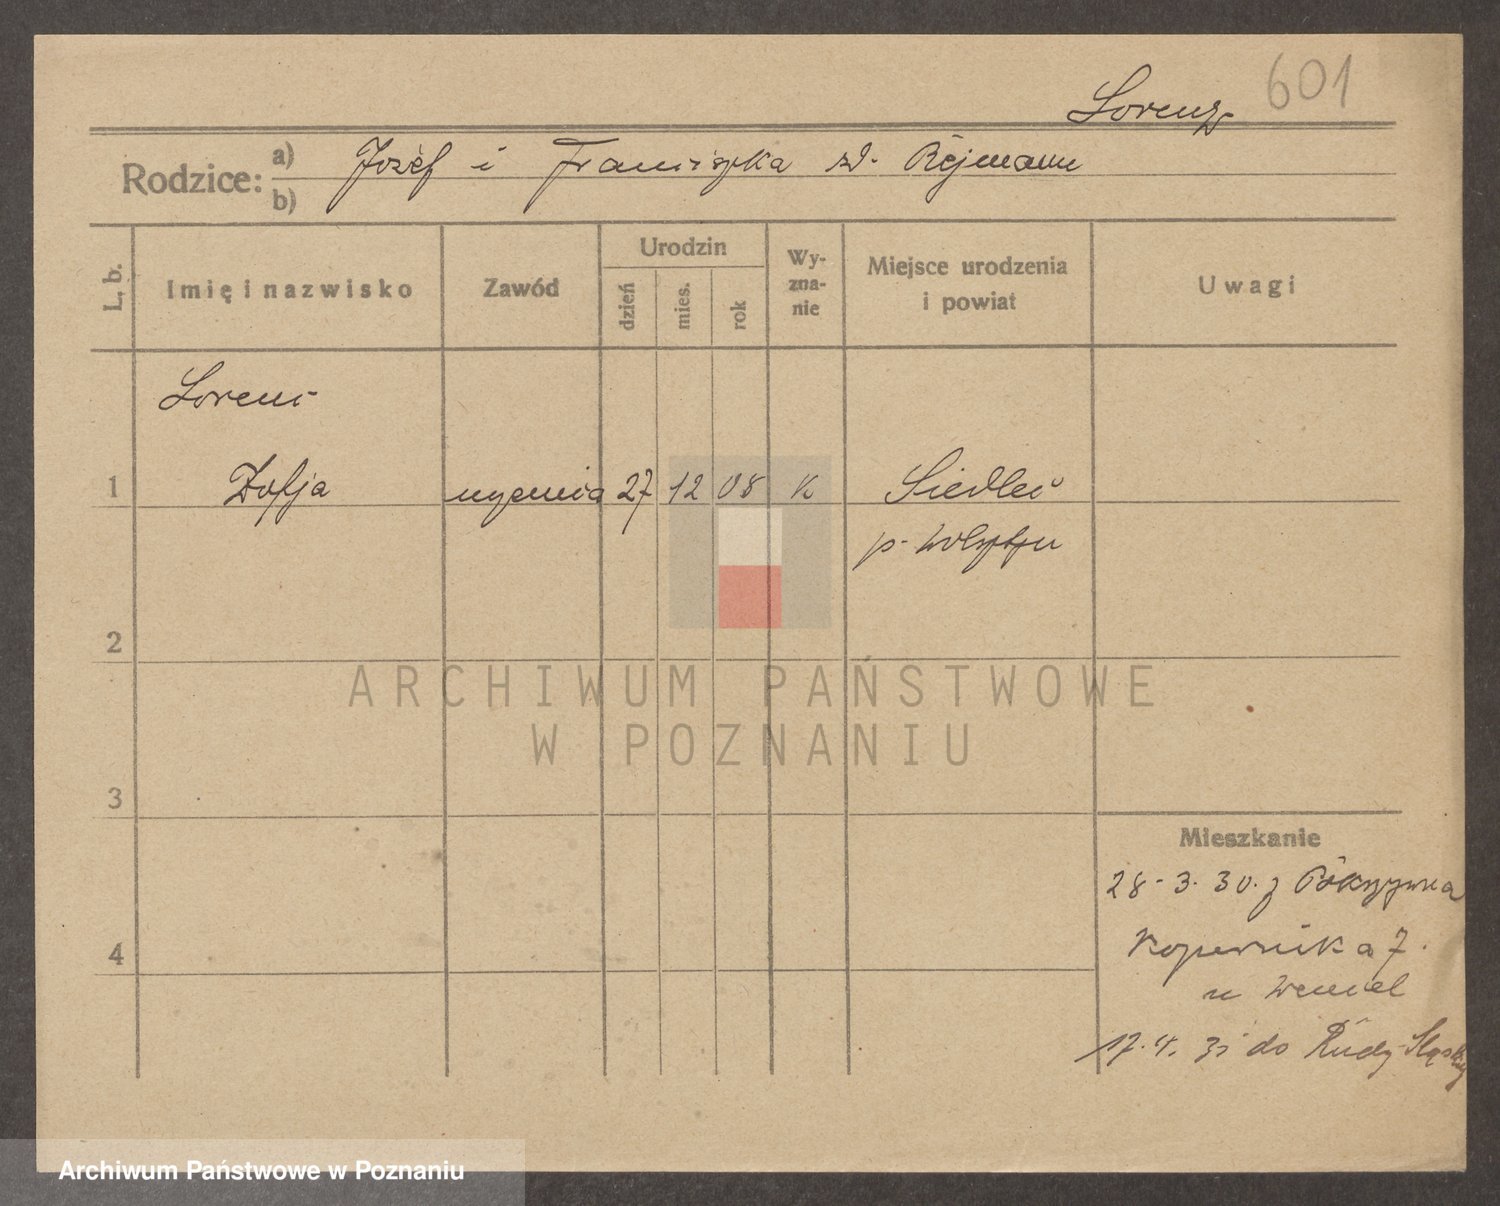 601
Lorenz
Rodzice: a) Józef i Franciszka zd. Rejmann
b)
L. b.
Imię i nazwisko
Zawód
Urodzin
dzień
mies.
rok
Wy-
zna-
nie
Miejsce urodzenia
i powiat
Uwagi
Lorenc
1 Zofja uczenica 27 12 08 K Siedlec
p. Wolsztyn
2
ARCHIWUM PAŃSTWOWE
W POZNANIU
3
Mieszkanie
28-3.30. z
4
Kopernika 7.
u
17.4. 31 do Rudy Śląskiej
Archiwum Państwowe w Poznaniu